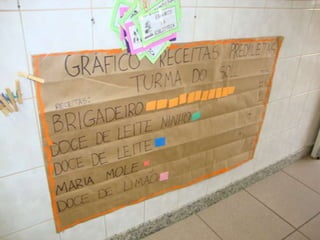 GRÁFICO RECEITAS PREDILETAS
TURMA DO SOL
RECEITAS:
BRIGADEIRO
DOCE DE LEITE NINHO
DOCE DE LEITE
MARIA MOLE
DOCE DE LIMÃO